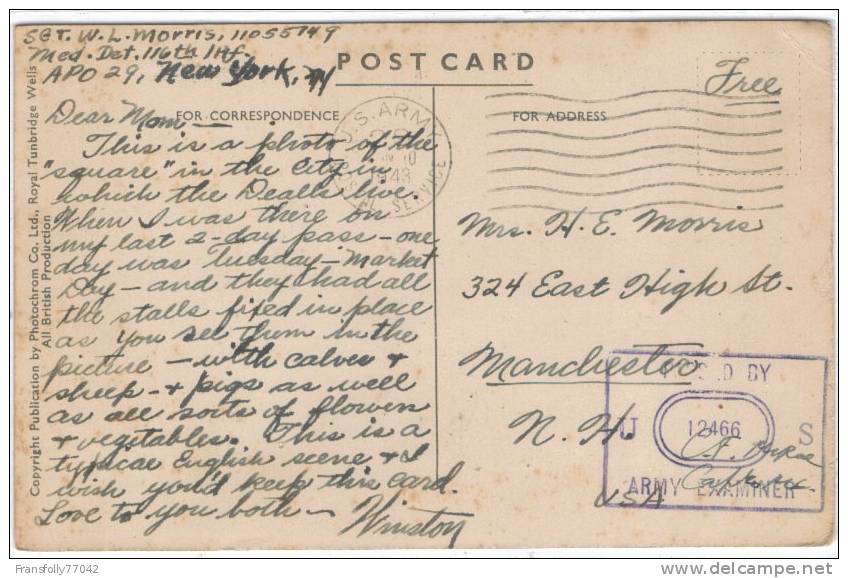 Sgt. W. L. Morris, 11055749
Med. Det. 116th Inf.
APO 29, New York, NY
POST CARD
Free
FOR CORRESPONDENCE
FOR ADDRESS
U.S. ARMY
POSTAL SERVICE
Dear Mom—
This is a photo of the
"square" in the City in
which the Dealls live.
When I was there on
my last 2-day pass—one
day was Tuesday—Market
Day—and they had all
the stalls fixed in place
as you see them in the
picture—with calves +
sheep—+ pigs as well
as all sorts of flowers
+ vegetables. This is a
typical English scene + I
wish you'd keep this card.
Love to you both—
Winston
Mrs. H. E. Morris
324 East High St.
Manchester
N. H.
USA
PASSED BY
U 12466 S
ARMY EXAMINER
Copyright Publication by Photochrom Co. Ltd., Royal Tunbridge Wells
All British Production
Fransfolly77042
delcampe.net